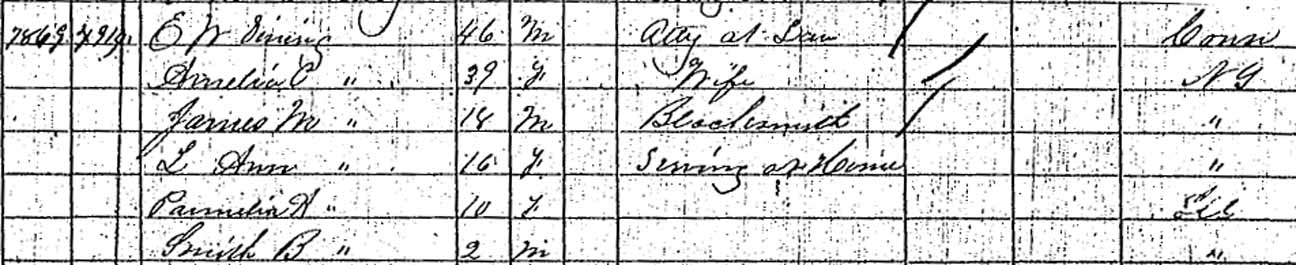 7869 7919 E W Vining 46 M Atty at Law Conn
Amelia C " 39 F Wife N Y
James M " 18 M Blacksmith "
L Ann " 16 F Sewing at Home "
Parmelia A " 10 F Ill
Smith B " 2 M "